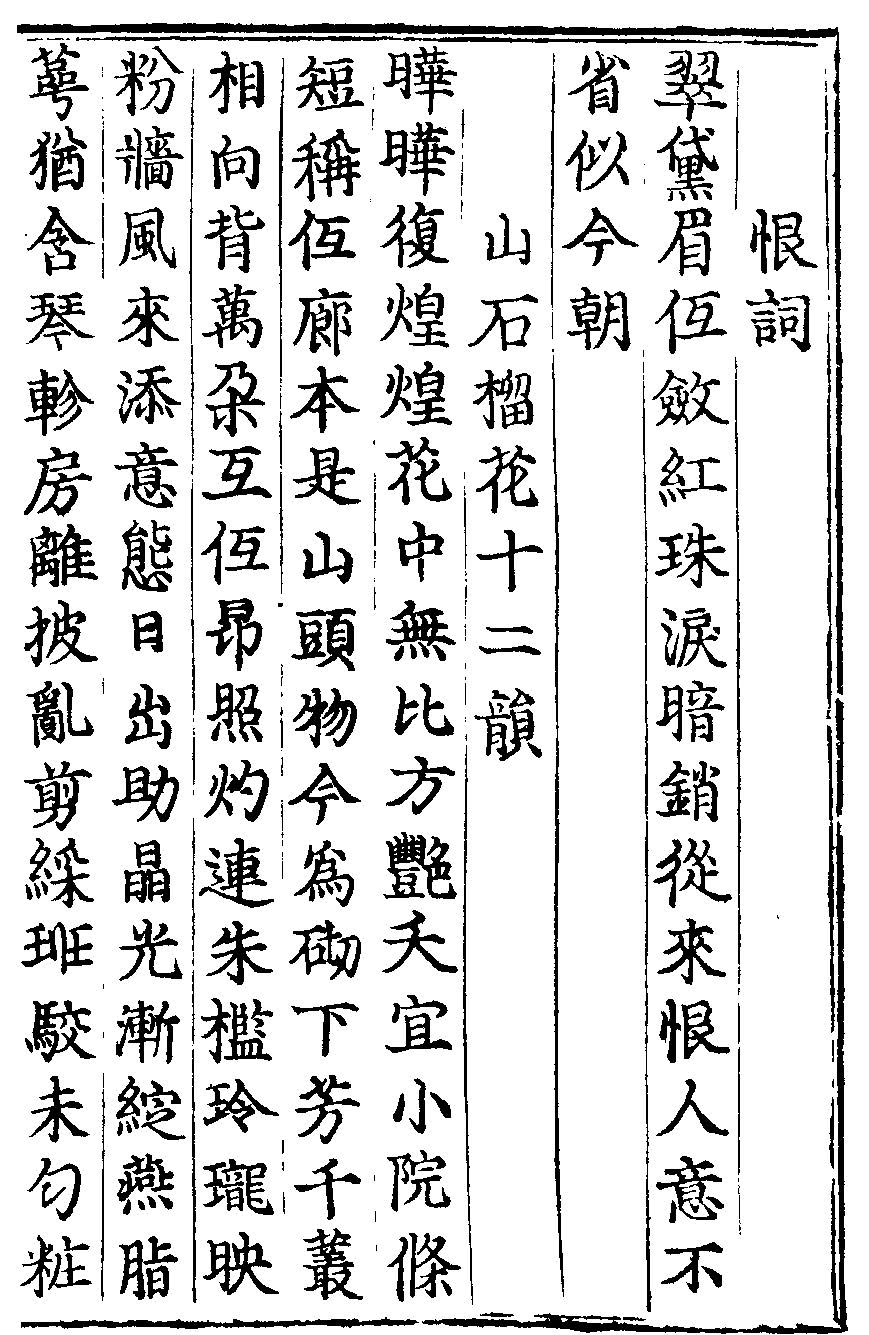 恨詞
翠黛眉低斂紅珠淚暗銷從來恨人意不
省似今朝
山石榴花十二韻
曄曄復煌煌花中無比方豔夭宜小院條
短稱低廊本是山頭物今爲砌下芳千叢
相向背萬朶互低昂照灼連朱檻玲瓏映
粉牆風來添意態日出助晶光漸綻燕脂
萼猶含琴軫房離披亂剪綵班駮未勻粧